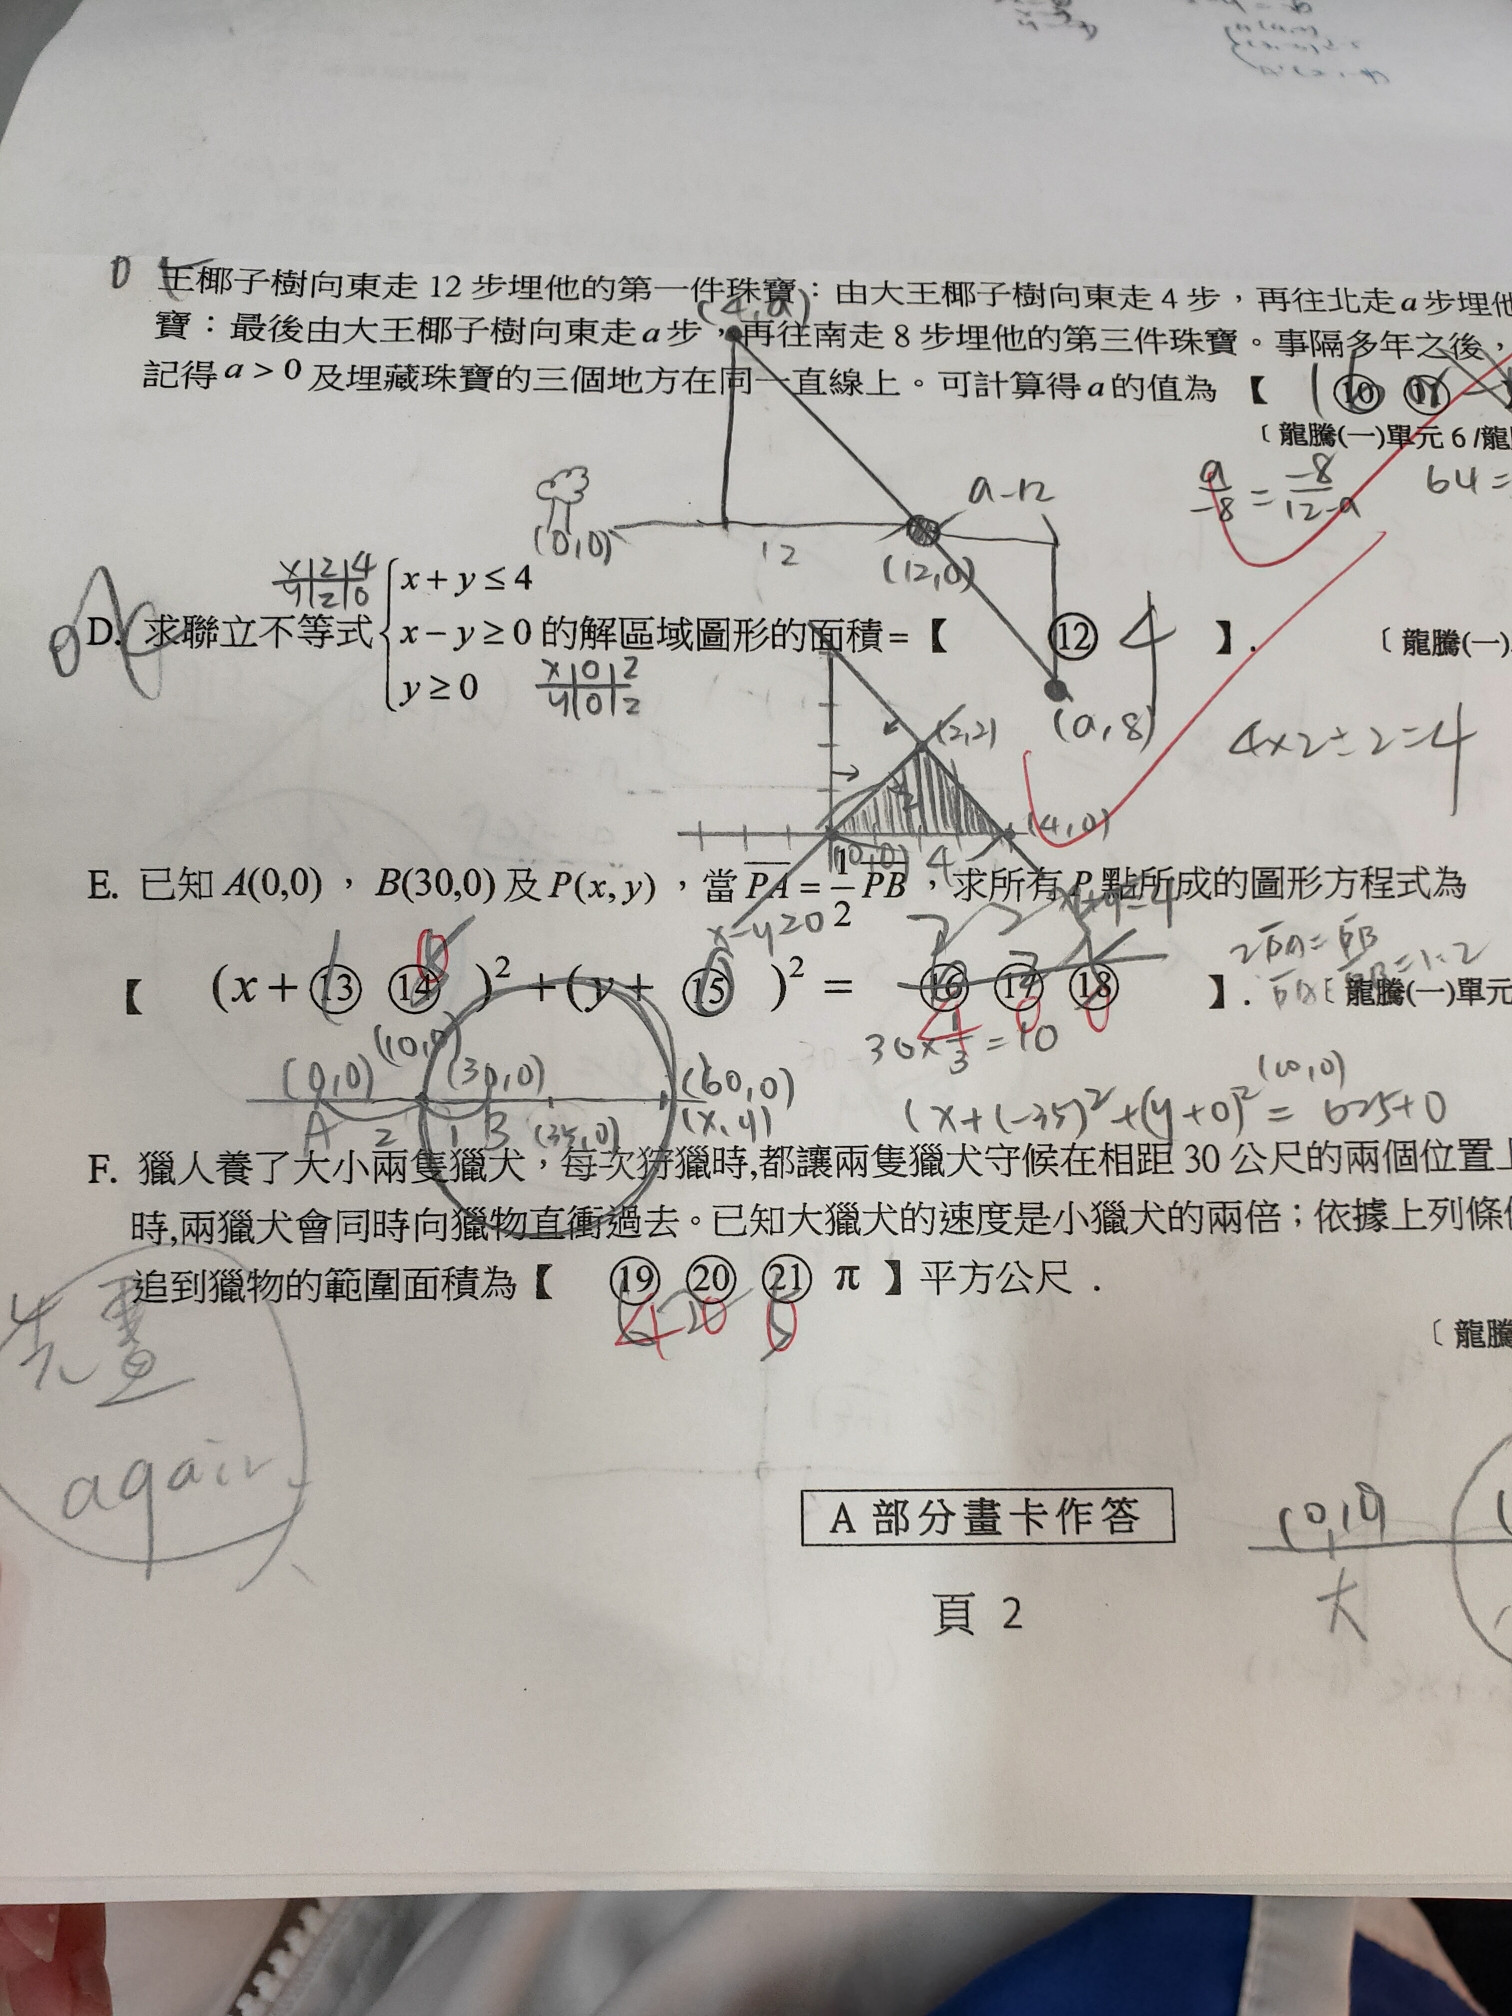 王椰子樹向東走 12 步埋他的第一件珠寶：由大王椰子樹向東走 4 步，再往北走 a 步埋他
(4,a)
寶：最後由大王椰子樹向東走 a 步，再往南走 8 步埋他的第三件珠寶。事隔多年之後，
記得 a > 0 及埋藏珠寶的三個地方在同一直線上。可計算得 a 的值為【 ⑩ ⑪
〔龍騰(一)單元 6 /龍
a/-8 = -8/12-a
64=
a-12
(0,0)
12
(12,0)
x|2|4
y|2|0
x + y ≤ 4
D. 求聯立不等式 x − y ≥ 0 的解區域圖形的面積=【 ⑫ 4 】.
〔龍騰(一)
y ≥ 0
x|0|2
y|0|2
(a,8)
(2,2)
4×2÷2=4
(4,0)
(0,0) 4
E. 已知 A(0,0)，B(30,0) 及 P(x, y)，當 PA = 1/2 PB，求所有 P 點所成的圖形方程式為
x-y≥0
x+y=4
2PA=PB
【 (x + ⑬ ⑭ )² + (y + ⑮ )² = ⑯ ⑰ ⑱ 】.
〔龍騰(一)單元
4 0 0
30×1/3=10
(10,0)
(0,0)
(30,0)
(60,0)
(x,y)
(10,0)
(x+(-35)²+(y+0)²= 625+0
A 2 1 B (35,0)
F. 獵人養了大小兩隻獵犬，每次狩獵時,都讓兩隻獵犬守候在相距 30 公尺的兩個位置上
時,兩獵犬會同時向獵物直衝過去。已知大獵犬的速度是小獵犬的兩倍；依據上列條件
追到獵物的範圍面積為【 ⑲ ⑳ ㉑ π 】平方公尺．
4 0 0
〔龍騰
先畫
again
A 部分畫卡作答
大
頁 2